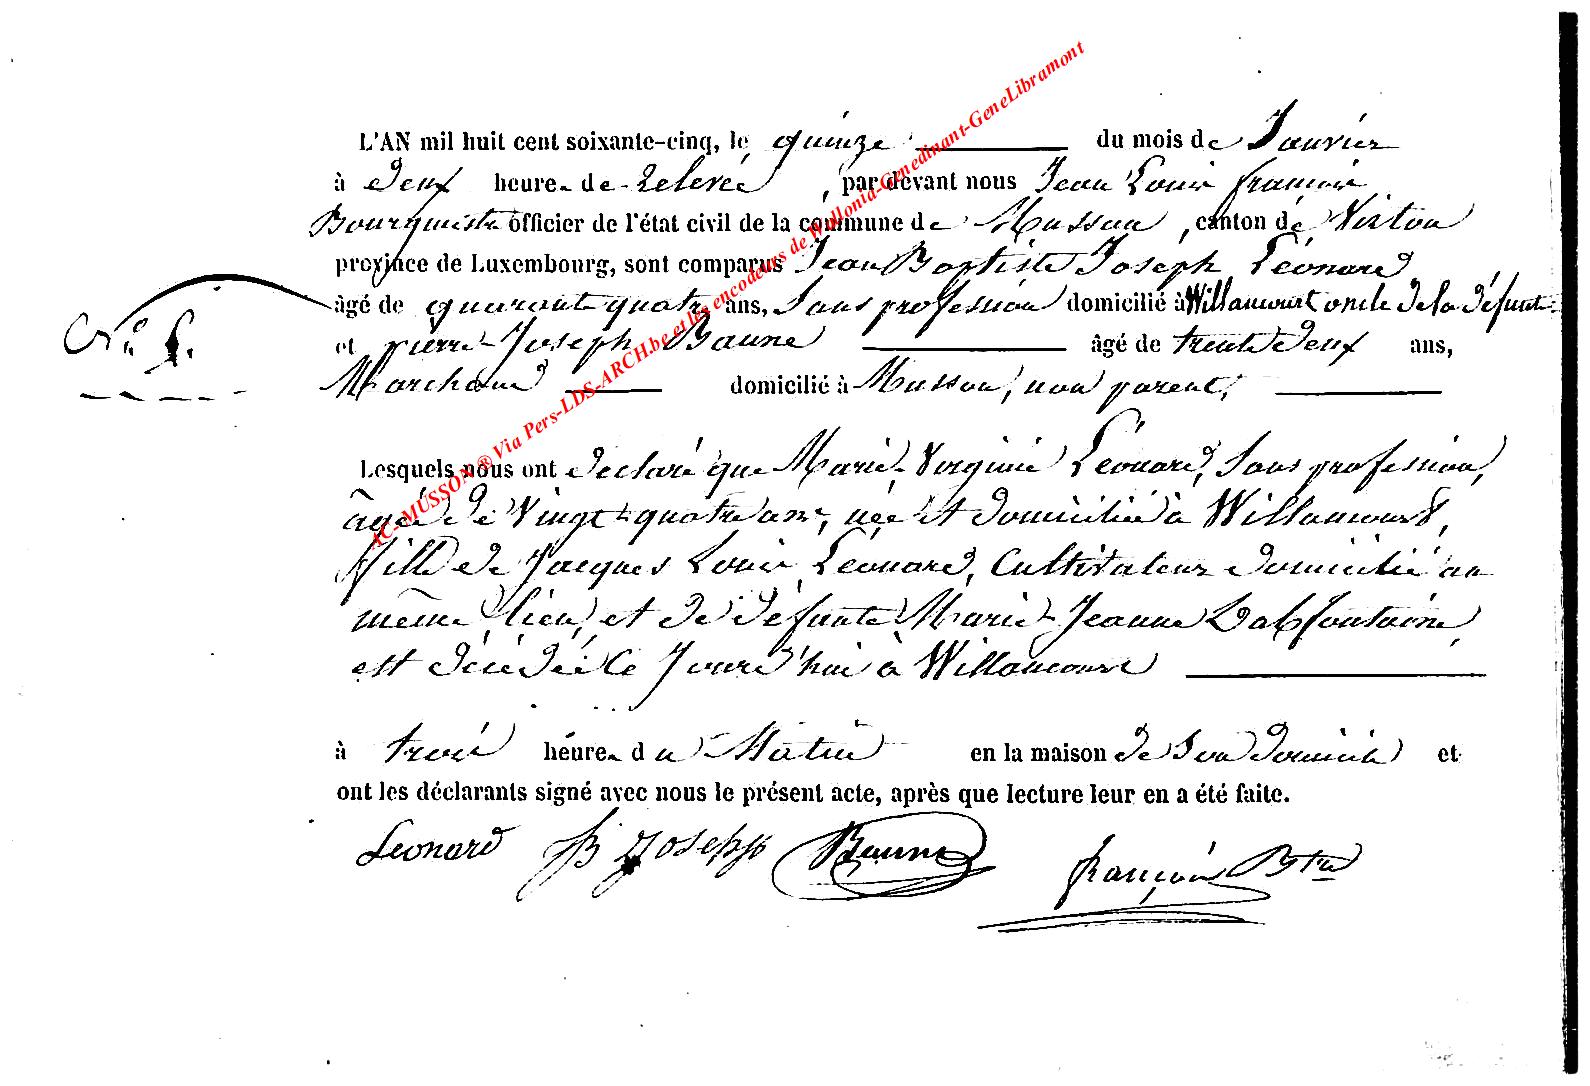 L'AN mil huit cent soixante-cinq, le quinze du mois de Janvier
à deux heures de relevée, par devant nous Jean Louis françois
Bourgmestre officier de l'état civil de la commune de Musson, canton de Virton
province de Luxembourg, sont comparus Jean Baptiste Joseph Léonard
âgé de quarante quatre ans, Sans profession domicilié à Willancourt oncle de la défunte
N° 
et pierre Joseph Baune âgé de trente deux ans,
Marchand domicilié à Musson, non parent,
Lesquels nous ont déclaré que Marie Virginie Léonard, Sans profession,
âgée de Vingt quatre ans, née et domiciliée à Willancourt,
fille de Jacques Louis Léonard, Cultivateur domicilié au
même lieu, et de défunte Marie Jeanne
est décédée Ce Jourd'hui à Willancourt
à trois heures du Matin en la maison de Son domicile et
ont les déclarants signé avec nous le présent acte, après que lecture leur en a été faite.
Leonard JB Joseph Baune françois Btre
AC-MUSSON ® Via Pers-LDS-ARCH.be et les encodeurs de Wallonia-Genedinant-GeneLibramont